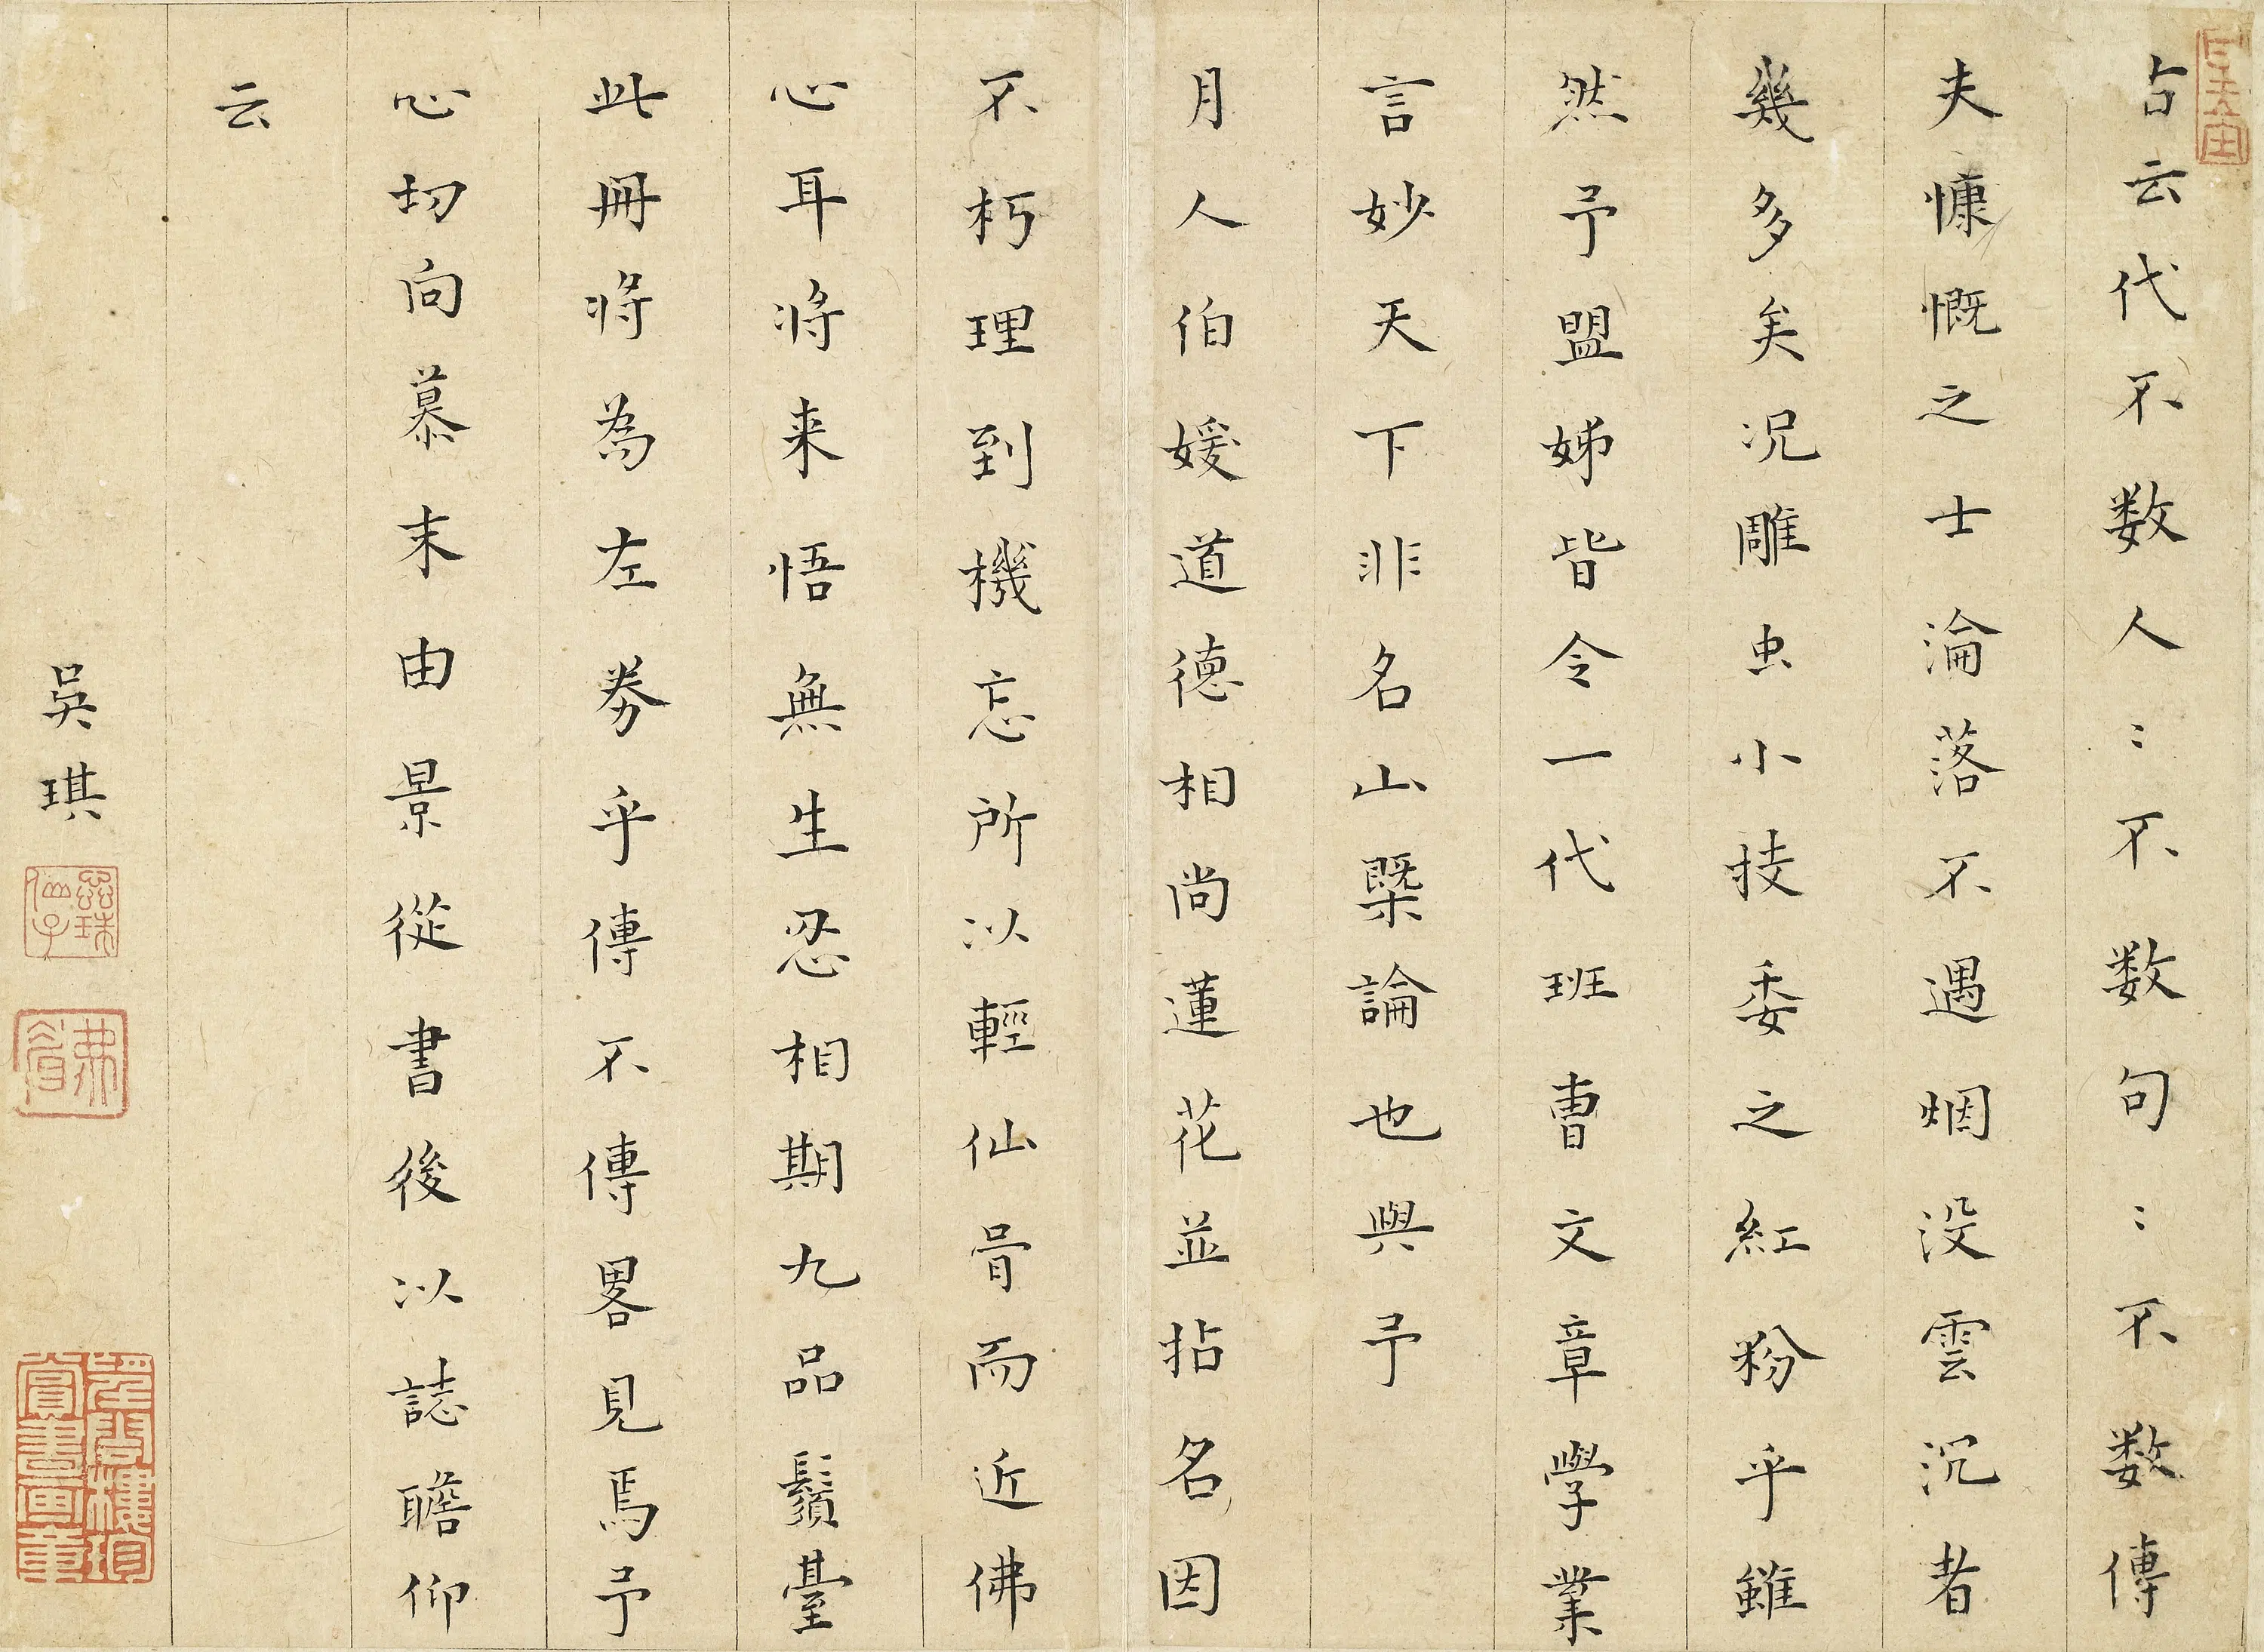 占云代不数人〻不数句〻不数傳
夫慷慨之士淪落不遇烟没雲沉者
幾多矣况雕虫小技委之紅粉乎雖
然予盟姊皆令一代班曹文章學業
言妙天下非名山槩論也與予
月人伯媛道德相尚蓮花並拈名因
不朽理到機忘所以輕仙骨而近佛
心耳将来悟無生忍相期九品鬚臺
此冊将為左券乎傳不傳畧見焉予
心切向慕末由景從書後以誌瞻仰
云
吳琪